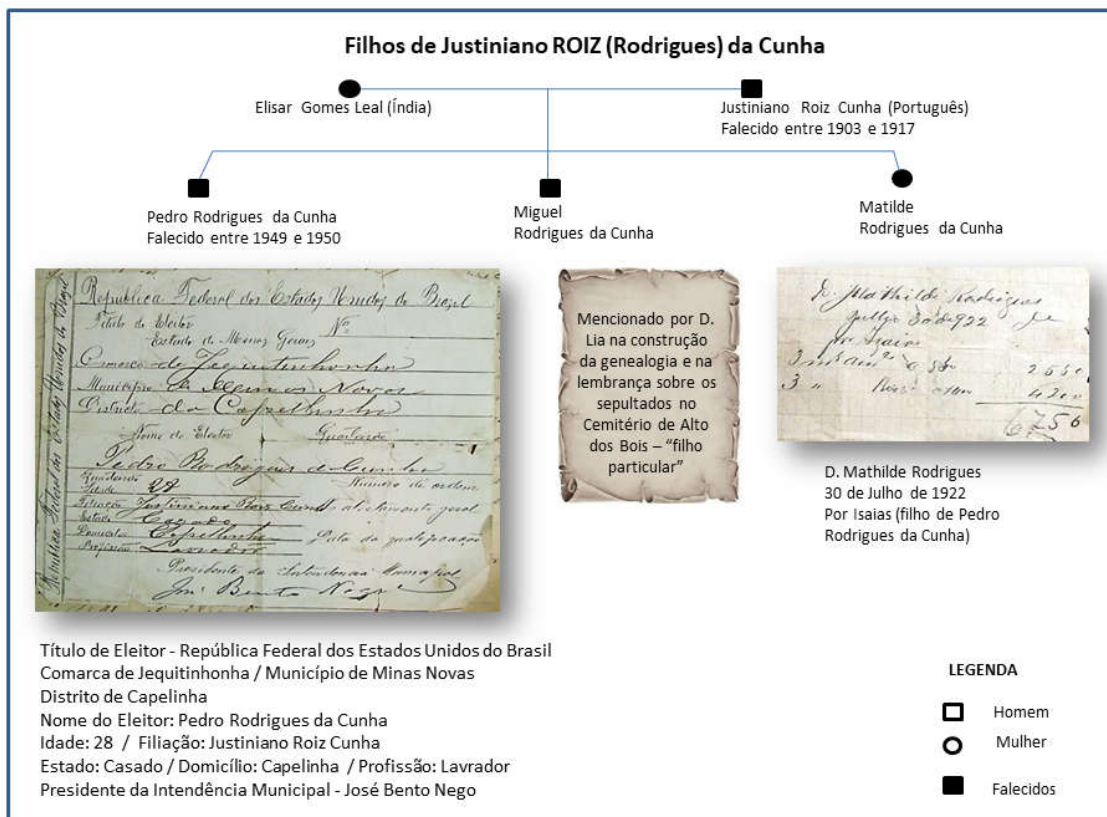 Filhos de Justiniano ROIZ (Rodrigues) da Cunha
Elisar Gomes Leal (Índia)
Justiniano Roiz Cunha (Português)
Falecido entre 1903 e 1917
Pedro Rodrigues da Cunha
Falecido entre 1949 e 1950
Miguel
Rodrigues da Cunha
Matilde
Rodrigues da Cunha
Republica Federal dos Estados Unidos do Brazil
Republica Federal dos Estados Unidos do Brazil
Titulo de Eleitor Nº
Estado de Minas Geraes
Comarca de Jequitinhonha
Municipio de Minas Novas
Districto da Capellinha
Nome do Eleitor
Pedro Rodrigues da Cunha
Numero de ordem
Idade 28
Filiação Justiniano Roiz Cunha alistamento geral
Estado Casado
Domicilio Capellinha Data da qualificação
Profissão Lavrador
Presidente da Intendencia Municipal
José Bento Nego
Mencionado por D.
Lia na construção
da genealogia e na
lembrança sobre os
sepultados no
Cemitério de Alto
dos Bois – “filho
particular”
D. Mathilde Rodrigues
30 de 922
por Isaias
3
2550
3 "
4200
6750
D. Mathilde Rodrigues
30 de Julho de 1922
Por Isaias (filho de Pedro
Rodrigues da Cunha)
Título de Eleitor - República Federal dos Estados Unidos do Brasil
Comarca de Jequitinhonha / Município de Minas Novas
Distrito de Capelinha
Nome do Eleitor: Pedro Rodrigues da Cunha
Idade: 28 / Filiação: Justiniano Roiz Cunha
Estado: Casado / Domicílio: Capelinha / Profissão: Lavrador
Presidente da Intendência Municipal - José Bento Nego
LEGENDA
Homem
Mulher
Falecidos